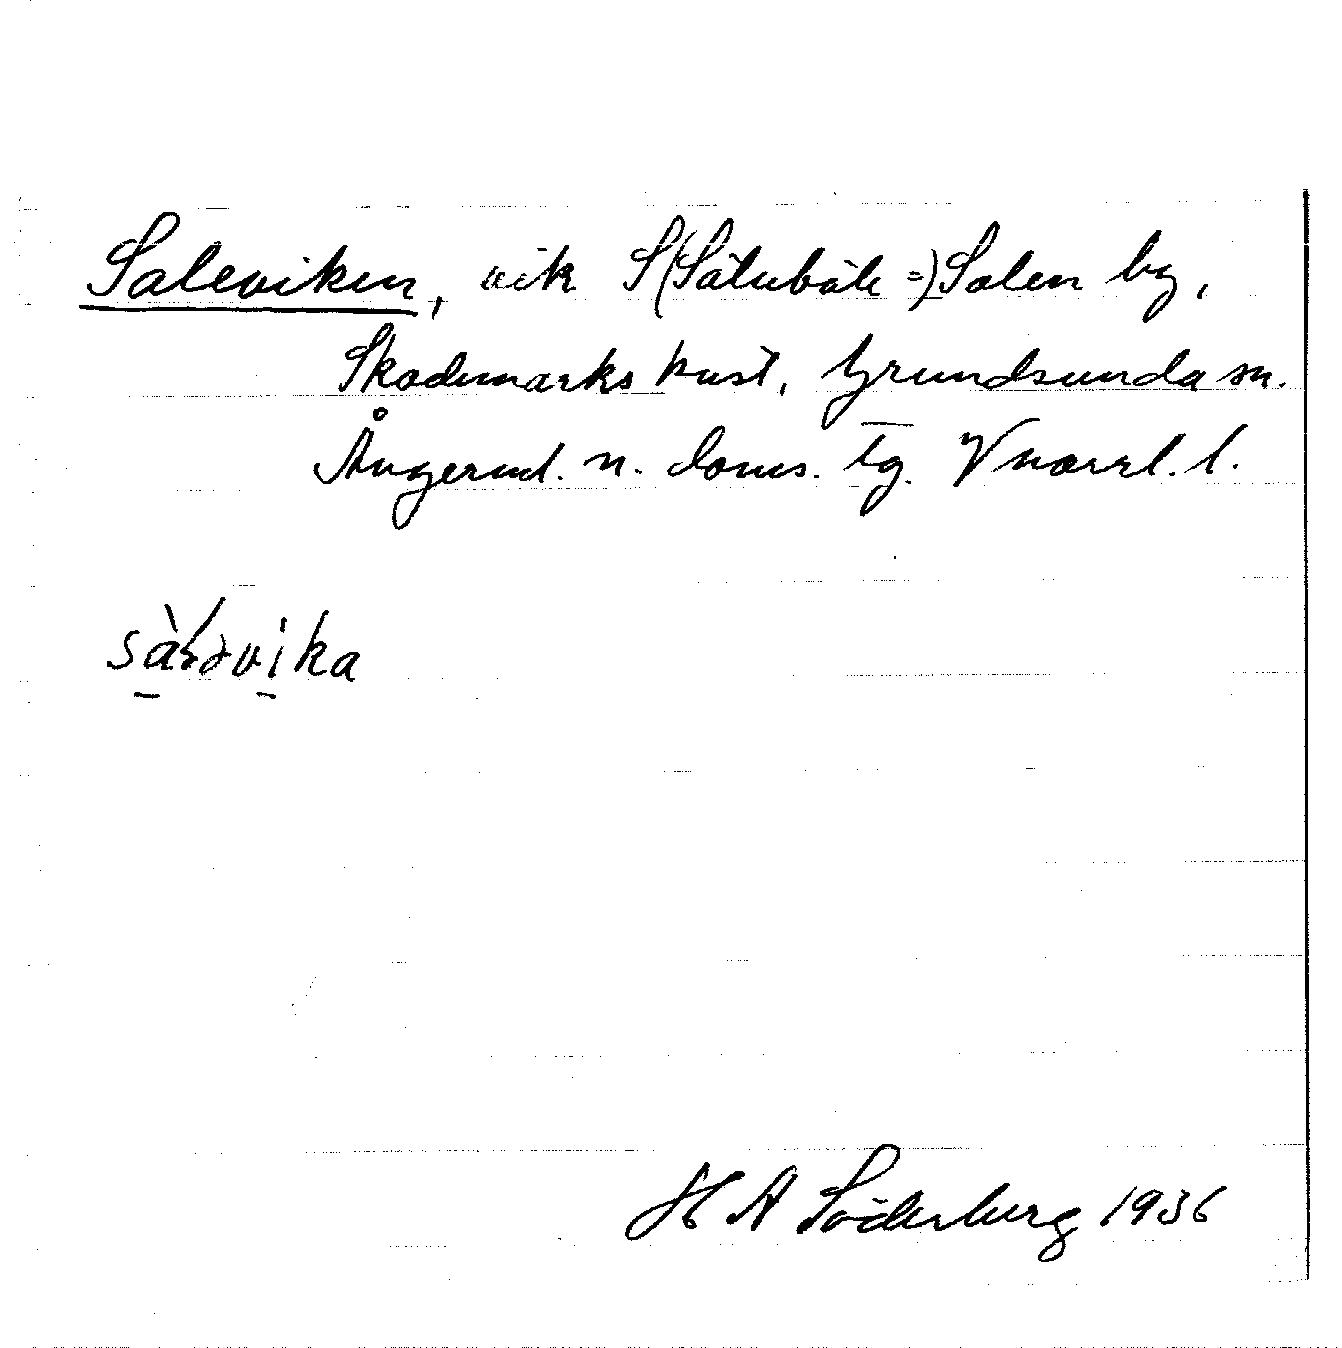 Saleviken, vik S (Sälubäle =) Salen by,
Skademarks kust, Grundsunda sn.
Ångerml. n. doms. tg. Vnorrl. l.
sàḷəvika
H A Söderberg 1936